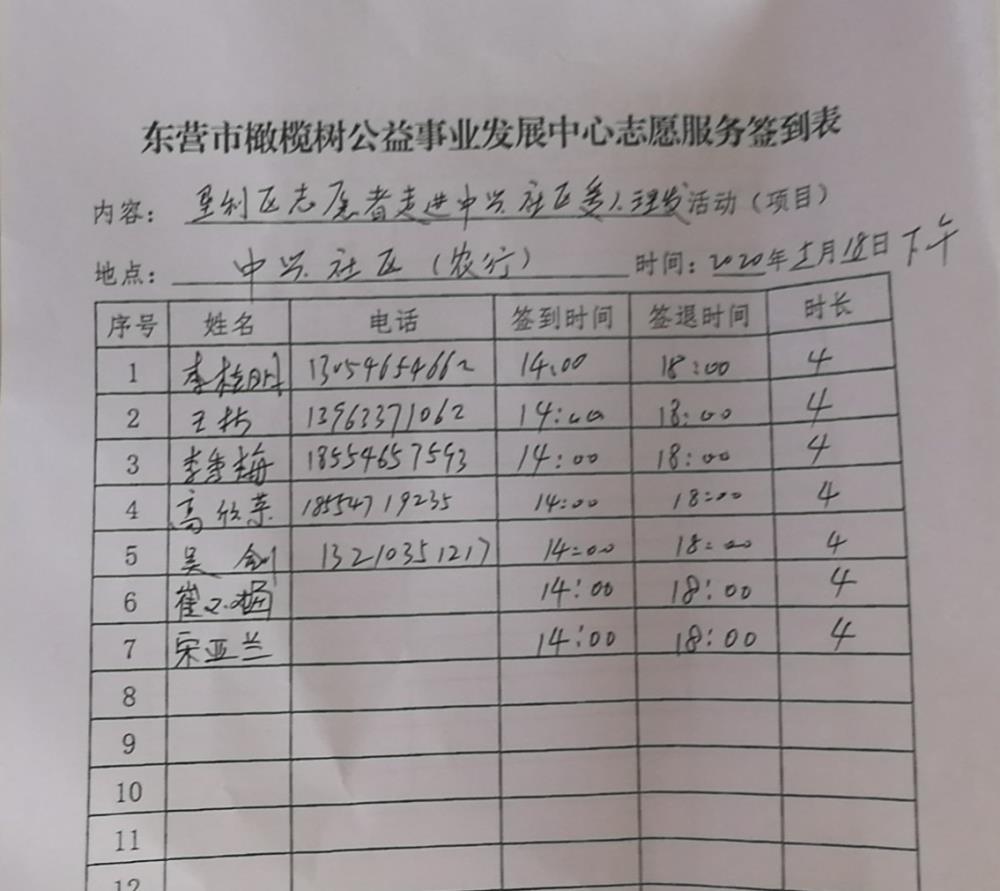 东营市橄榄树公益事业发展中心志愿服务签到表
内容：垦利区志愿者走进中兴社区义理发活动（项目）
地点：中兴社区（农行） 时间：2020年5月18日下午
序号 姓名 电话 签到时间 签退时间 时长
1 李桂明 13054654662 14:00 18:00 4
2 王 13963371062 14:00 18:00 4
3 李秀梅 18554657593 14:00 18:00 4
4 高欣荣 18554719235 14:00 18:00 4
5 吴剑 13210351217 14:00 18:00 4
6 崔 14:00 18:00 4
7 宋亚兰 14:00 18:00 4
8
9
10
11
12